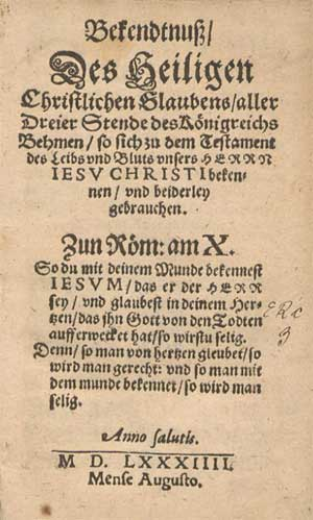 Bekendtnuß/
Des Heiligen
Christlichen Glaubens/aller
Dreier Stende des Königreichs
Behmen/ so sich zu dem Testament
des Leibs vnd Bluts vnsers HERRN
IESV CHRISTI beken-
nen/ vnd beiderley
gebrauchen.
Zun Röm: am X.
So du mit deinem Munde bekennest
IESVM/ das er der HERR
sey/ vnd glaubest in deinem Her-
tzen/das jhn Gott von den Todten
aufferwecket hat/so wirstu selig.
Denn/ so man von hertzen gleubet/so
wird man gerecht: vnd so man mit
dem munde bekennet/so wird man
selig.
Anno salutis.
M D. LXXXIIII.
Mense Augusto.